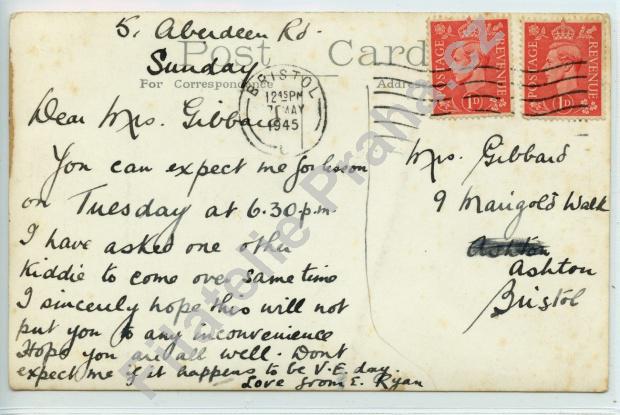 5, Aberdeen Rd.
Sunday
Post Card
For Correspondence
Address
BRISTOL
12 45 PM
7 MAY
1945
POSTAGE REVENUE
1D
POSTAGE REVENUE
1D
Dear Mrs. Gibbard
You can expect me for lesson
on Tuesday at 6.30 p.m.
I have asked one other
Kiddie to come over same time
I sincerely hope this will not
put you to any inconvenience
Hope you are all well. Dont
expect me if it happens to be V.E. day.
Love from E. Ryan
Mrs. Gibbard
9 Marigold Walk
Ashton
Ashton
Bristol
Filatelie Praha.cz